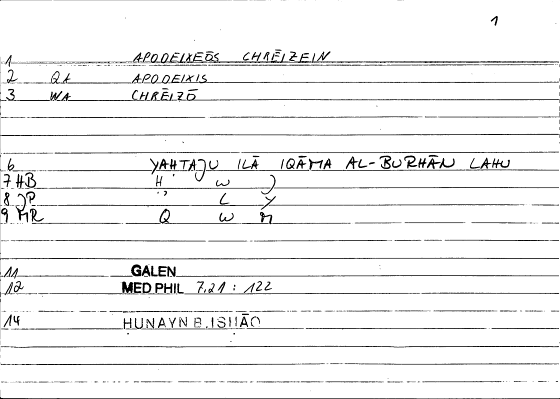 1
1 APODEIXEŌS CHRĒIZEIN
2 QA APODEIXIS
3 WA CHRĒIZŌ
6 YAHTAJU ILĀ IQĀMA AL-BURHĀN LAHU
7 HB H W J
8 JP " L Y
9 MR Q W M
11 GALEN
12 MED PHIL 7,21 : 122
14 HUNAYN B. ISHĀQ